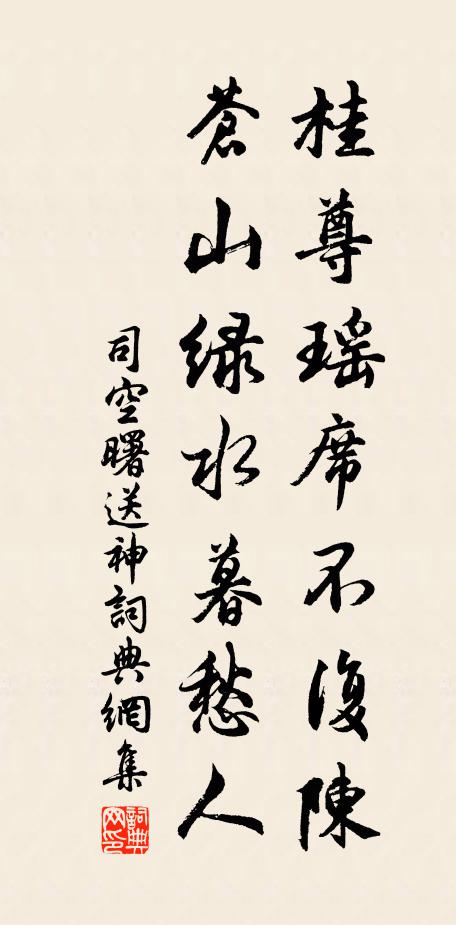 桂尊瑶席不復陳
蒼山緑水暮愁人
司空曙送神詞典網集
詞典網印